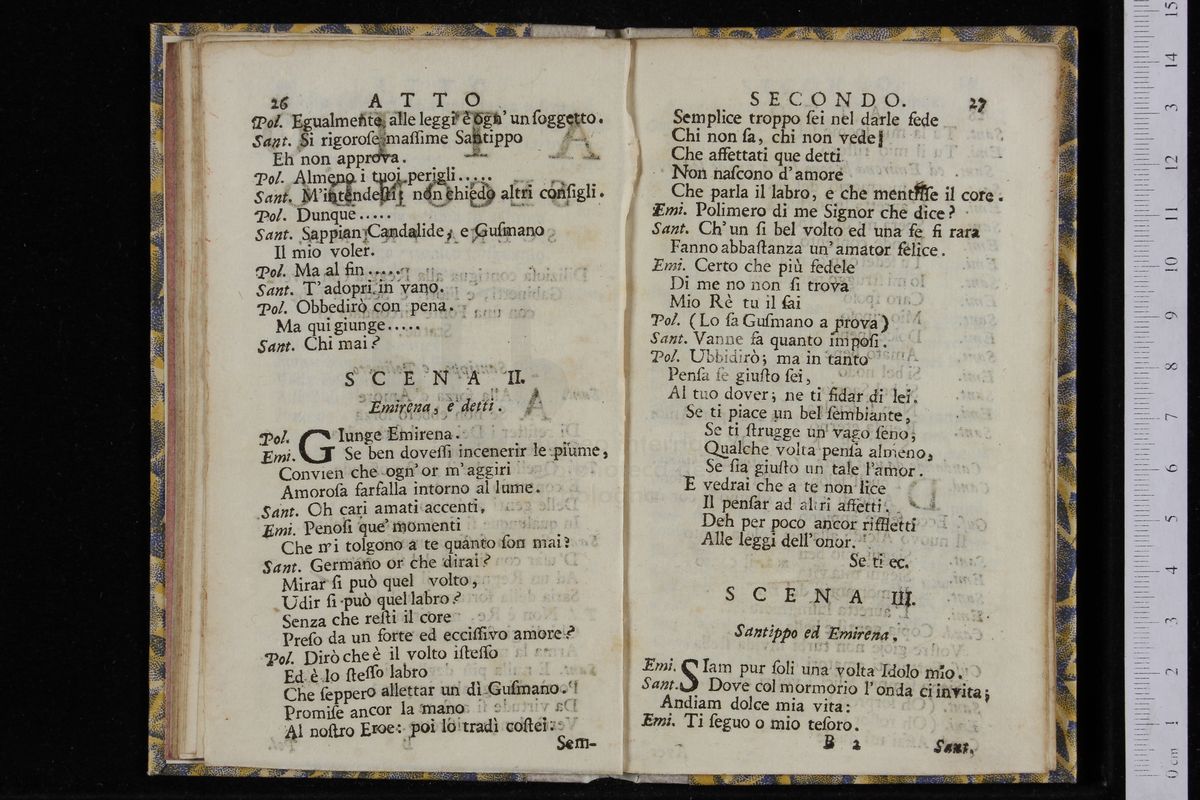 26 ATTO
Pol. Egualmente alle leggi è ogn' un soggetto.
Sant. Si rigorose massime Santippo
Eh non approva.
Pol. Almeno i tuoi perigli.....
Sant. M'intendesti; non chiedo altri consigli.
Pol. Dunque.....
Sant. Sappian Candalide, e Gusmano
Il mio voler.
Pol. Ma al fin.....
Sant. T'adopri in vano.
Pol. Obbedirò con pena.
Ma qui giunge.....
Sant. Chi mai?
SCENA II.
Emirena, e detti.
Pol. GIunge Emirena.
Emi. Se ben dovessi incenerir le piume,
Convien che ogn' or m'aggiri
Amorosa farfalla intorno al lume.
Sant. Oh cari amati accenti.
Emi. Penosi que' momenti
Che m'i tolgono a te quanto son mai?
Sant. Germano or che dirai?
Mirar si può quel volto,
Udir si può quel labro?
Senza che resti il core
Preso da un forte ed eccissivo amore?
Pol. Dirò che è il volto istesso
Ed è lo stesso labro
Che seppero allettar un dì Gusmano.
Promise ancor la mano
Al nostro Eroe: poi lo tradì costei.
Sem-
SECONDO. 27
Semplice troppo sei nel darle fede
Chi non sa, chi non vede
Che affettati que detti
Non nascono d'amore
Che parla il labro, e che mentisse il core.
Emi. Polimero di me Signor che dice?
Sant. Ch'un si bel volto ed una fe si rara
Fanno abbastanza un' amator felice.
Emi. Certo che più fedele
Di me no non si trova
Mio Rè tu il sai
Pol. (Lo sa Gusmano a prova)
Sant. Vanne fa quanto imposi.
Pol. Ubbidirò; ma in tanto
Pensa se giusto sei,
Al tuo dover; ne ti fidar di lei.
Se ti piace un bel sembiante,
Se ti strugge un vago seno;
Qualche volta pensa almeno,
Se sia giusto un tale l'amor.
E vedrai che a te non lice
Il pensar ad altri affetti.
Deh per poco ancor riffletti
Alle leggi dell'onor.
Se ti ec.
SCENA III.
Santippo ed Emirena.
Emi. SIam pur soli una volta Idolo mio.
Sant. Dove col mormorio l'onda ci invita;
Andiam dolce mia vita:
Emi. Ti seguo o mio tesoro.
B 2 Sant.